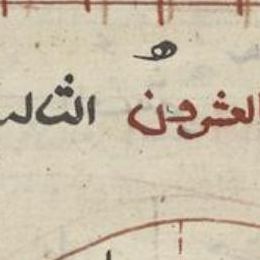 العشرون الثالث